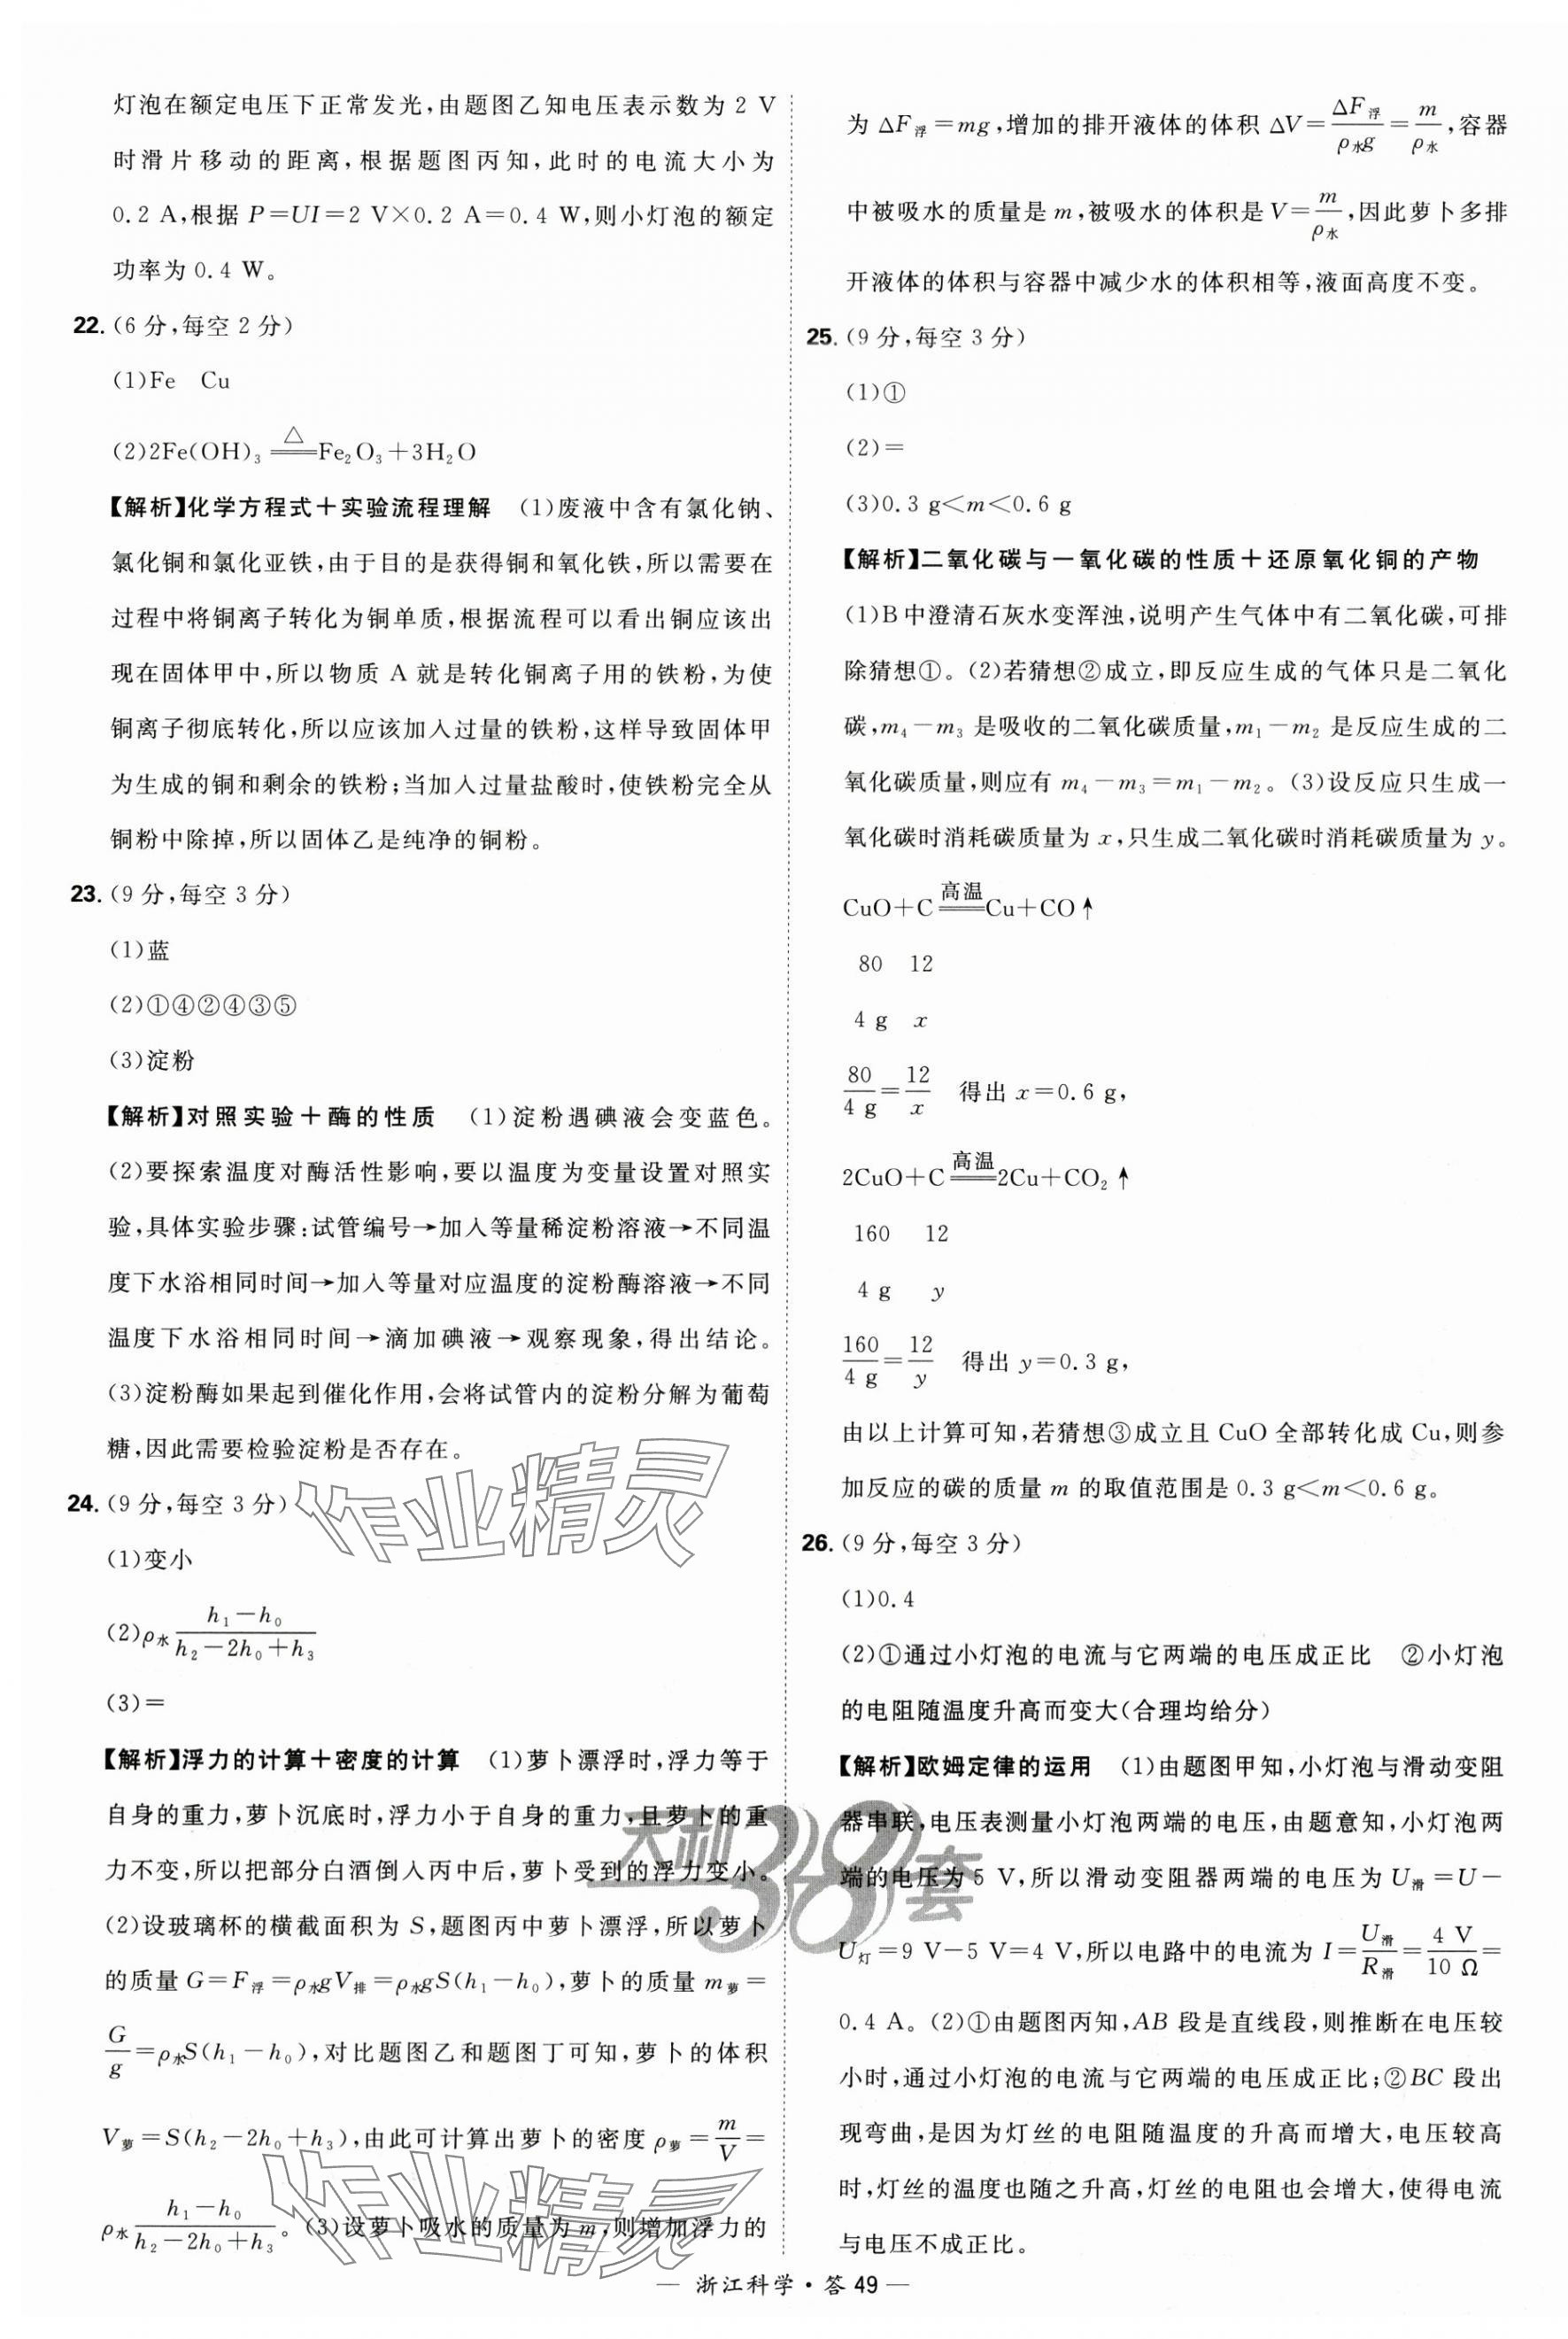 灯泡在额定电压下正常发光,由题图乙知电压表示数为 2 V
时滑片移动的距离,根据题图丙知,此时的电流大小为
0.2 A,根据 P=UI=2 V×0.2 A=0.4 W,则小灯泡的额定
功率为 0.4 W。
22.(6 分,每空 2 分)
(1)Fe Cu
(2)2Fe(OH)₃ =△= Fe₂O₃+3H₂O
【解析】化学方程式+实验流程理解 (1)废液中含有氯化钠、
氯化铜和氯化亚铁,由于目的是获得铜和氧化铁,所以需要在
过程中将铜离子转化为铜单质,根据流程可以看出铜应该出
现在固体甲中,所以物质 A 就是转化铜离子用的铁粉,为使
铜离子彻底转化,所以应该加入过量的铁粉,这样导致固体甲
为生成的铜和剩余的铁粉;当加入过量盐酸时,使铁粉完全从
铜粉中除掉,所以固体乙是纯净的铜粉。
23.(9 分,每空 3 分)
(1)蓝
(2)①④②④③⑤
(3)淀粉
【解析】对照实验+酶的性质 (1)淀粉遇碘液会变蓝色。
(2)要探索温度对酶活性影响,要以温度为变量设置对照实
验,具体实验步骤:试管编号→加入等量稀淀粉溶液→不同温
度下水浴相同时间→加入等量对应温度的淀粉酶溶液→不同
温度下水浴相同时间→滴加碘液→观察现象,得出结论。
(3)淀粉酶如果起到催化作用,会将试管内的淀粉分解为葡萄
糖,因此需要检验淀粉是否存在。
24.(9 分,每空 3 分)
(1)变小
(2)ρ水 (h₁−h₀)/(h₂−2h₀+h₃)
(3)=
【解析】浮力的计算+密度的计算 (1)萝卜漂浮时,浮力等于
自身的重力,萝卜沉底时,浮力小于自身的重力,且萝卜的重
力不变,所以把部分白酒倒入丙中后,萝卜受到的浮力变小。
(2)设玻璃杯的横截面积为 S,题图丙中萝卜漂浮,所以萝卜
的质量 G=F浮=ρ水gV排=ρ水gS(h₁−h₀),萝卜的质量 m萝=
G/g=ρ水S(h₁−h₀),对比题图乙和题图丁可知,萝卜的体积
V萝=S(h₂−2h₀+h₃),由此可计算出萝卜的密度 ρ萝=m/V=
ρ水 (h₁−h₀)/(h₂−2h₀+h₃)。(3)设萝卜吸水的质量为 m,则增加浮力的
为 ΔF浮=mg,增加的排开液体的体积 ΔV=ΔF浮/ρ水g=m/ρ水,容器
中被吸水的质量是 m,被吸水的体积是 V=m/ρ水,因此萝卜多排
开液体的体积与容器中减少水的体积相等,液面高度不变。
25.(9 分,每空 3 分)
(1)①
(2)=
(3)0.3 g<m<0.6 g
【解析】二氧化碳与一氧化碳的性质+还原氧化铜的产物
(1)B中澄清石灰水变浑浊,说明产生气体中有二氧化碳,可排
除猜想①。(2)若猜想②成立,即反应生成的气体只是二氧化
碳,m₄−m₃ 是吸收的二氧化碳质量,m₁−m₂ 是反应生成的二
氧化碳质量,则应有 m₄−m₃=m₁−m₂。(3)设反应只生成一
氧化碳时消耗碳质量为 x,只生成二氧化碳时消耗碳质量为 y。
CuO+C =高温= Cu+CO↑
80 12
4 g x
80/4 g=12/x 得出 x=0.6 g,
2CuO+C =高温= 2Cu+CO₂↑
160 12
4 g y
160/4 g=12/y 得出 y=0.3 g,
由以上计算可知,若猜想③成立且 CuO 全部转化成 Cu,则参
加反应的碳的质量 m 的取值范围是 0.3 g<m<0.6 g。
26.(9 分,每空 3 分)
(1)0.4
(2)①通过小灯泡的电流与它两端的电压成正比 ②小灯泡
的电阻随温度升高而变大(合理均给分)
【解析】欧姆定律的运用 (1)由题图甲知,小灯泡与滑动变阻
器串联,电压表测量小灯泡两端的电压,由题意知,小灯泡两
端的电压为 5 V,所以滑动变阻器两端的电压为 U滑=U−
U灯=9 V−5 V=4 V,所以电路中的电流为 I=U滑/R滑=4 V/10 Ω=
0.4 A。(2)①由题图丙知,AB 段是直线段,则推断在电压较
小时,通过小灯泡的电流与它两端的电压成正比;②BC 段出
现弯曲,是因为灯丝的电阻随温度的升高而增大,电压较高
时,灯丝的温度也随之升高,灯丝的电阻也会增大,使得电流
与电压不成正比。
— 浙江科学·答 49 —
作业精灵
天利38套
作业精灵